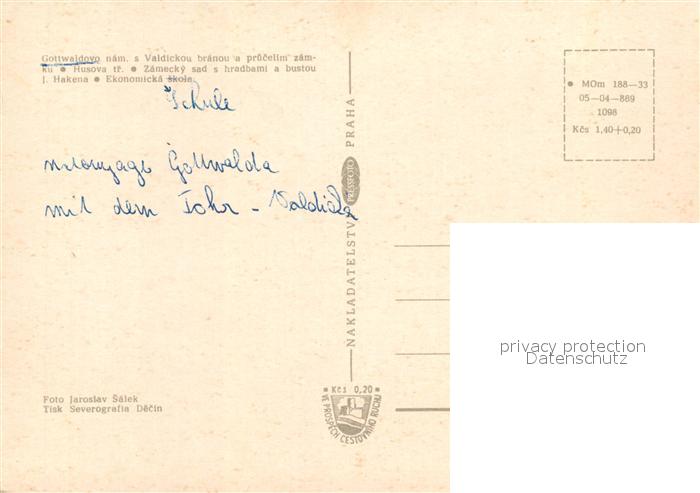 Gottwaldovo nám. s Valdickou bránou a průčelím zám-
ku • Husova tř. • Zámecký sad s hradbami a bustou
J. Hakena • Ekonomická škola
Schule
Gottwalda
mit dem Tohr - Valdická
Foto Jaroslav Šálek
Tisk Severografia Děčín
NAKLADATELSTVÍ PRESSFOTO PRAHA
Kčs 0,20
VE PROSPĚCH CESTOVNÍHO RUCHU
• MOm 188—33
05—04—889
1098
Kčs 1,40+0,20
privacy protection
Datenschutz